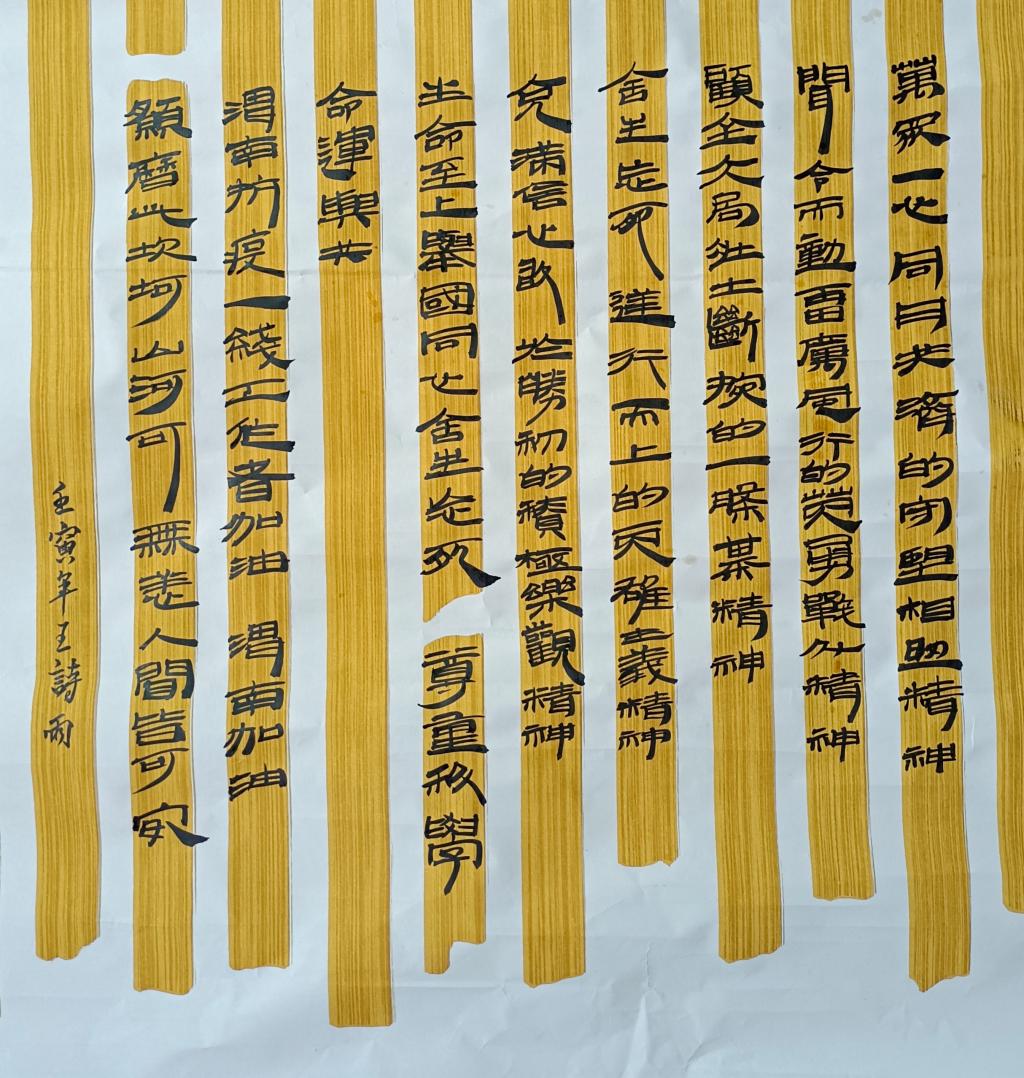 萬眾一心同日共濟的守朢相助精神
聞令而動雷厲風行的英勇戰鬥精神
顧全大局壯士斷腕的一條某精神
舍生忘死逆行而上的責任擔義精神
充滿信心敢於勝初的積極樂觀精神
生命至上舉國同心舍生忘死
尊重科學
命運與共
渭南防疫一綫工作者加油 渭南加油
願曆此坎坷山河可無恙人間皆可安
壬寅年王詩雨